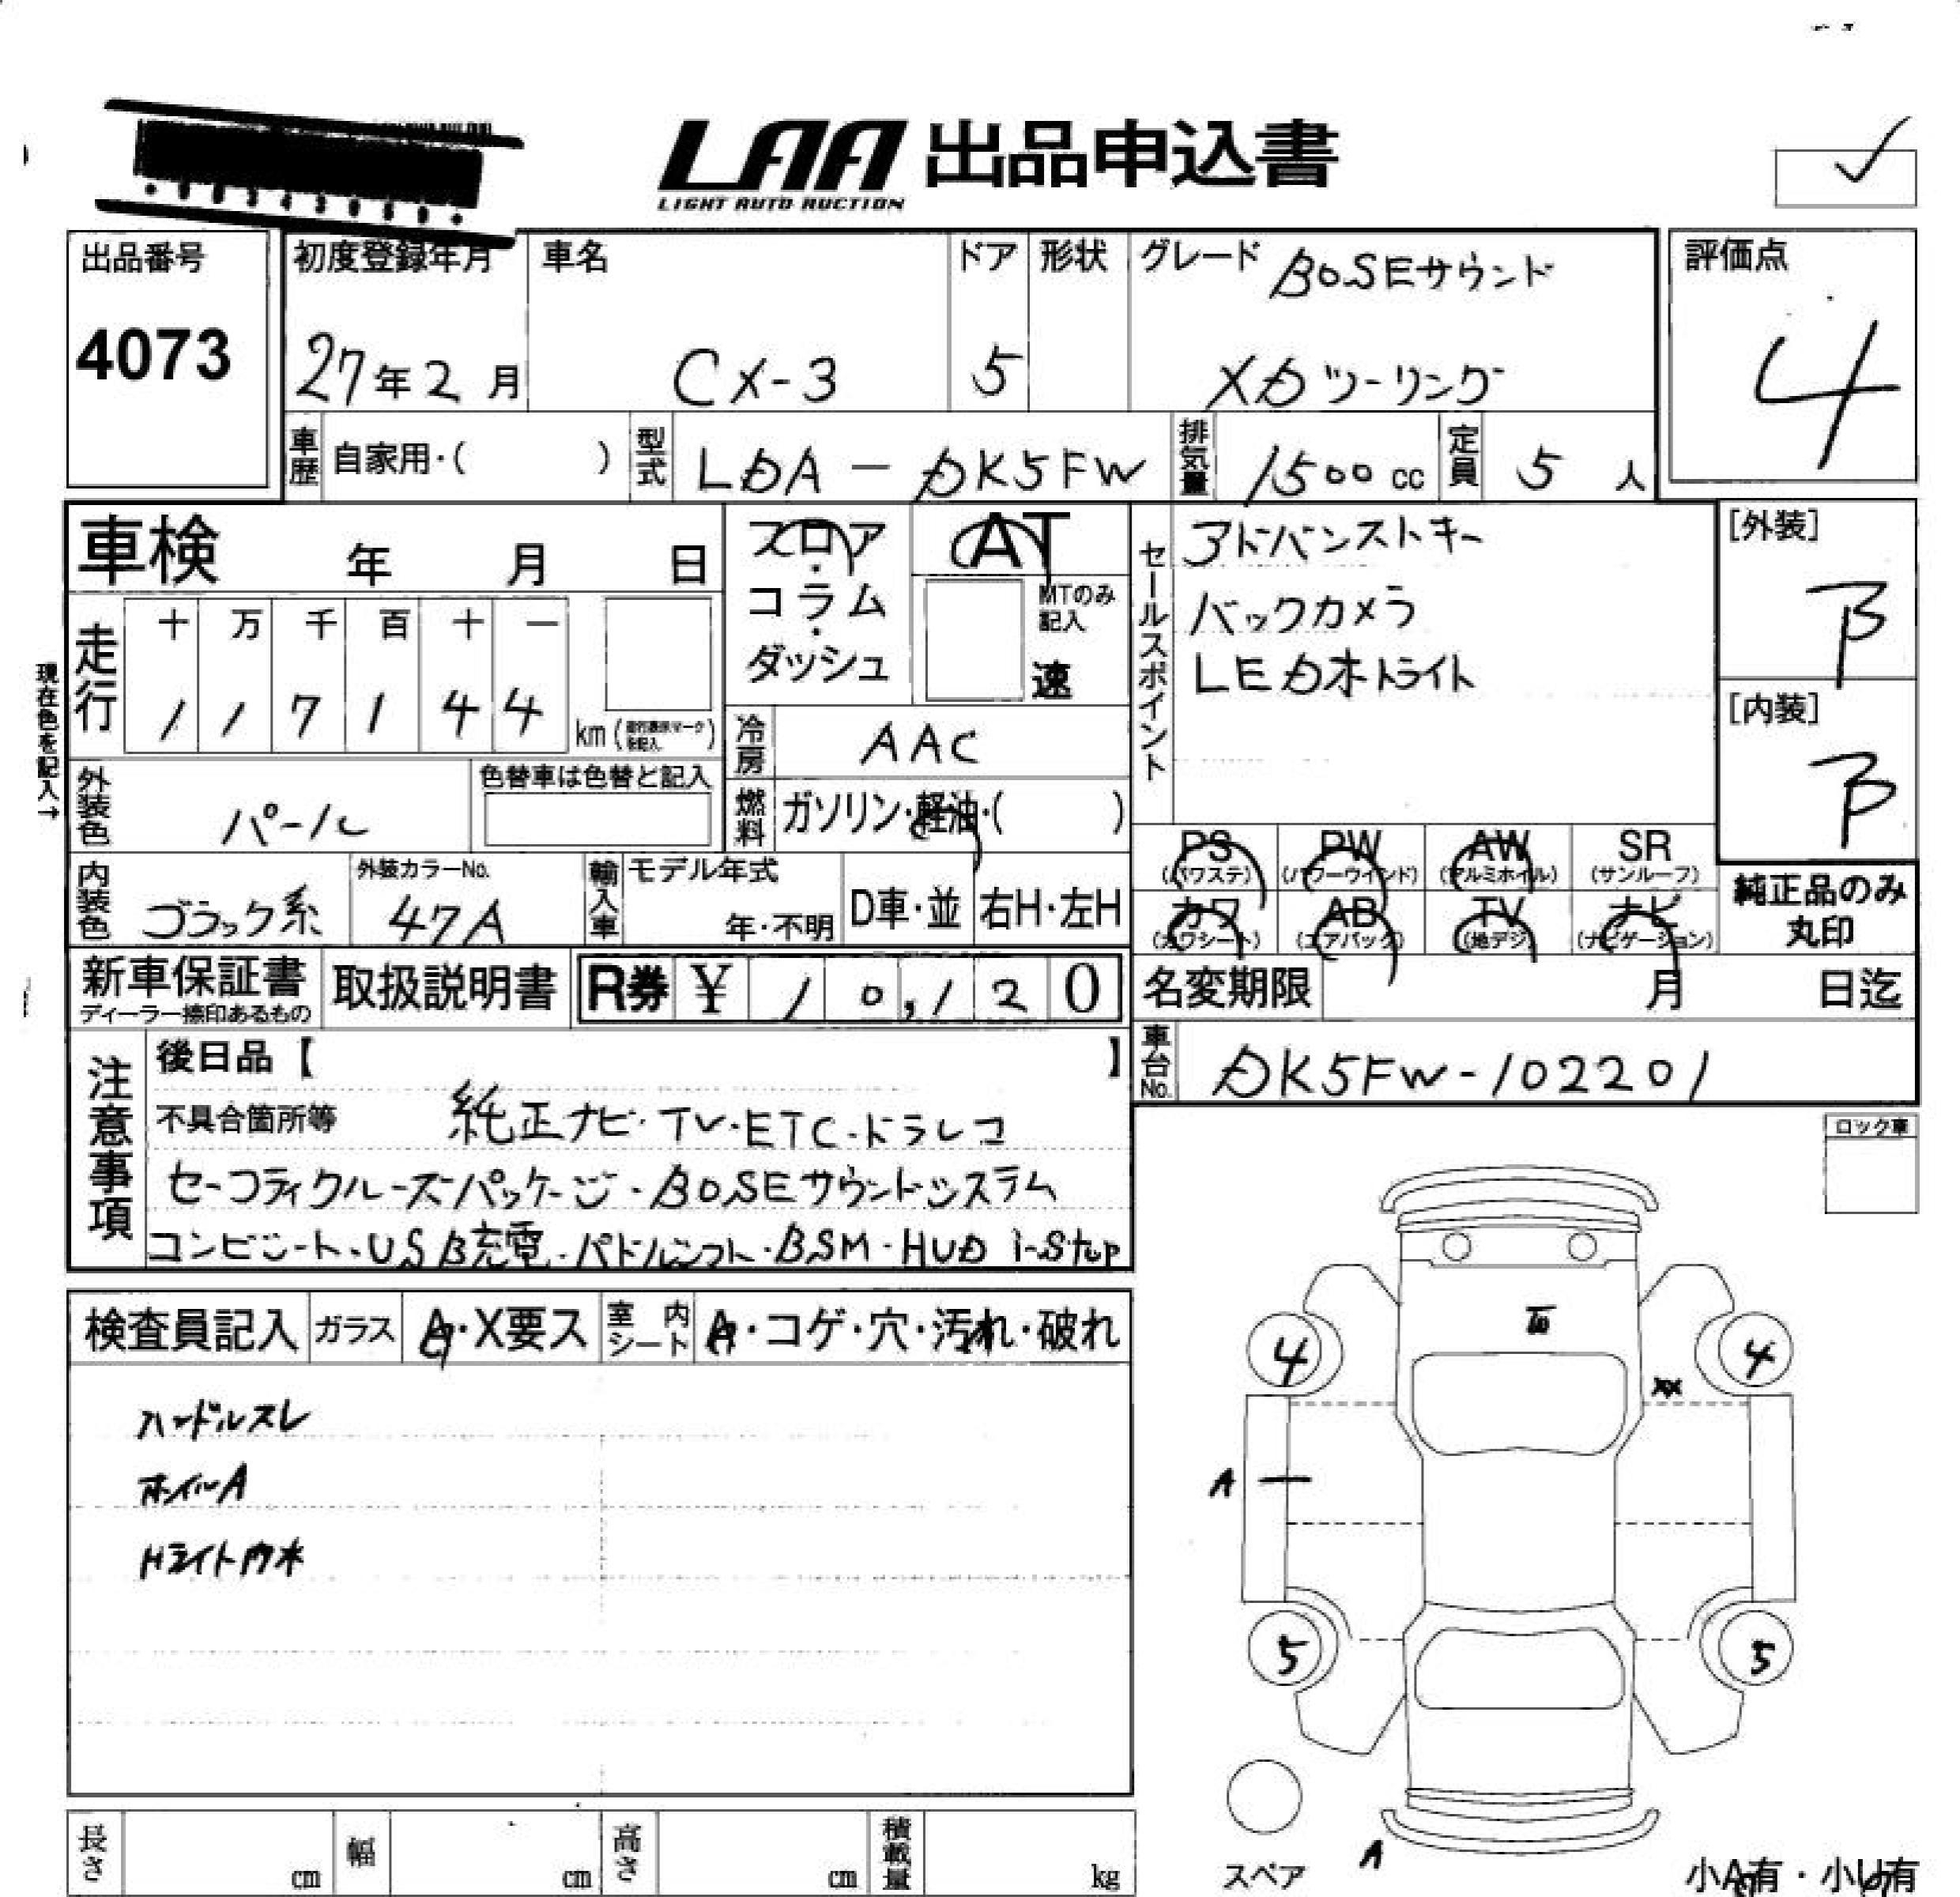 LAA 出品申込書
LIGHT AUTO AUCTION
出品番号
4073
初度登録年月
27年2月
車名
CX-3
ドア
5
形状
グレード BOSEサウンド
XDツーリング
評価点
4
車歴 自家用・( )
型式 LDA-DK5FW
排気量 1500cc
定員 5人
車検 年 月 日
フロア・コラム・ダッシュ
AT
MTのみ記入
速
セールスポイント
アドバンストキー
バックカメラ
LEDホトライト
[外装]
B
[内装]
B
現在色を記入→
走行
十 万 千 百 十 一
1 1 7 1 4 4
km
冷房 AAC
外装色 パール
色替車は色替と記入
燃料 ガソリン・軽油・( )
PS (パワステ)
PW (パワーウインド)
AW (アルミホイル)
SR (サンルーフ)
内装色 ブラック系
外装カラーNo. 47A
輸入車 モデル年式 年・不明
D車・並 右H・左H
カワ (カワシート)
AB (エアバック)
TV (地デジ)
ナビ (ナビゲーション)
純正品のみ丸印
新車保証書
ディーラー捺印あるもの
取扱説明書
R券 ¥ 10,120
名変期限 月 日迄
車台No. DK5FW-102201
注意事項
後日品【 】
不具合箇所等 純正ナビ・TV・ETC・ドラレコ
セーフティクルーズパッケージ・BOSEサウンドシステム
コンビシート・USB充電・パドルシフト・BSM・HUD i-Stop
ロック車
検査員記入
ガラス A・X要ス
室内シート A・コゲ・穴・汚れ・破れ
ハンドルスレ
ホイルA
Hライトウホ
4
4
XX
A
5
5
スペア
A
小A有・小U有
長さ cm
幅 cm
高さ cm
積載量 kg